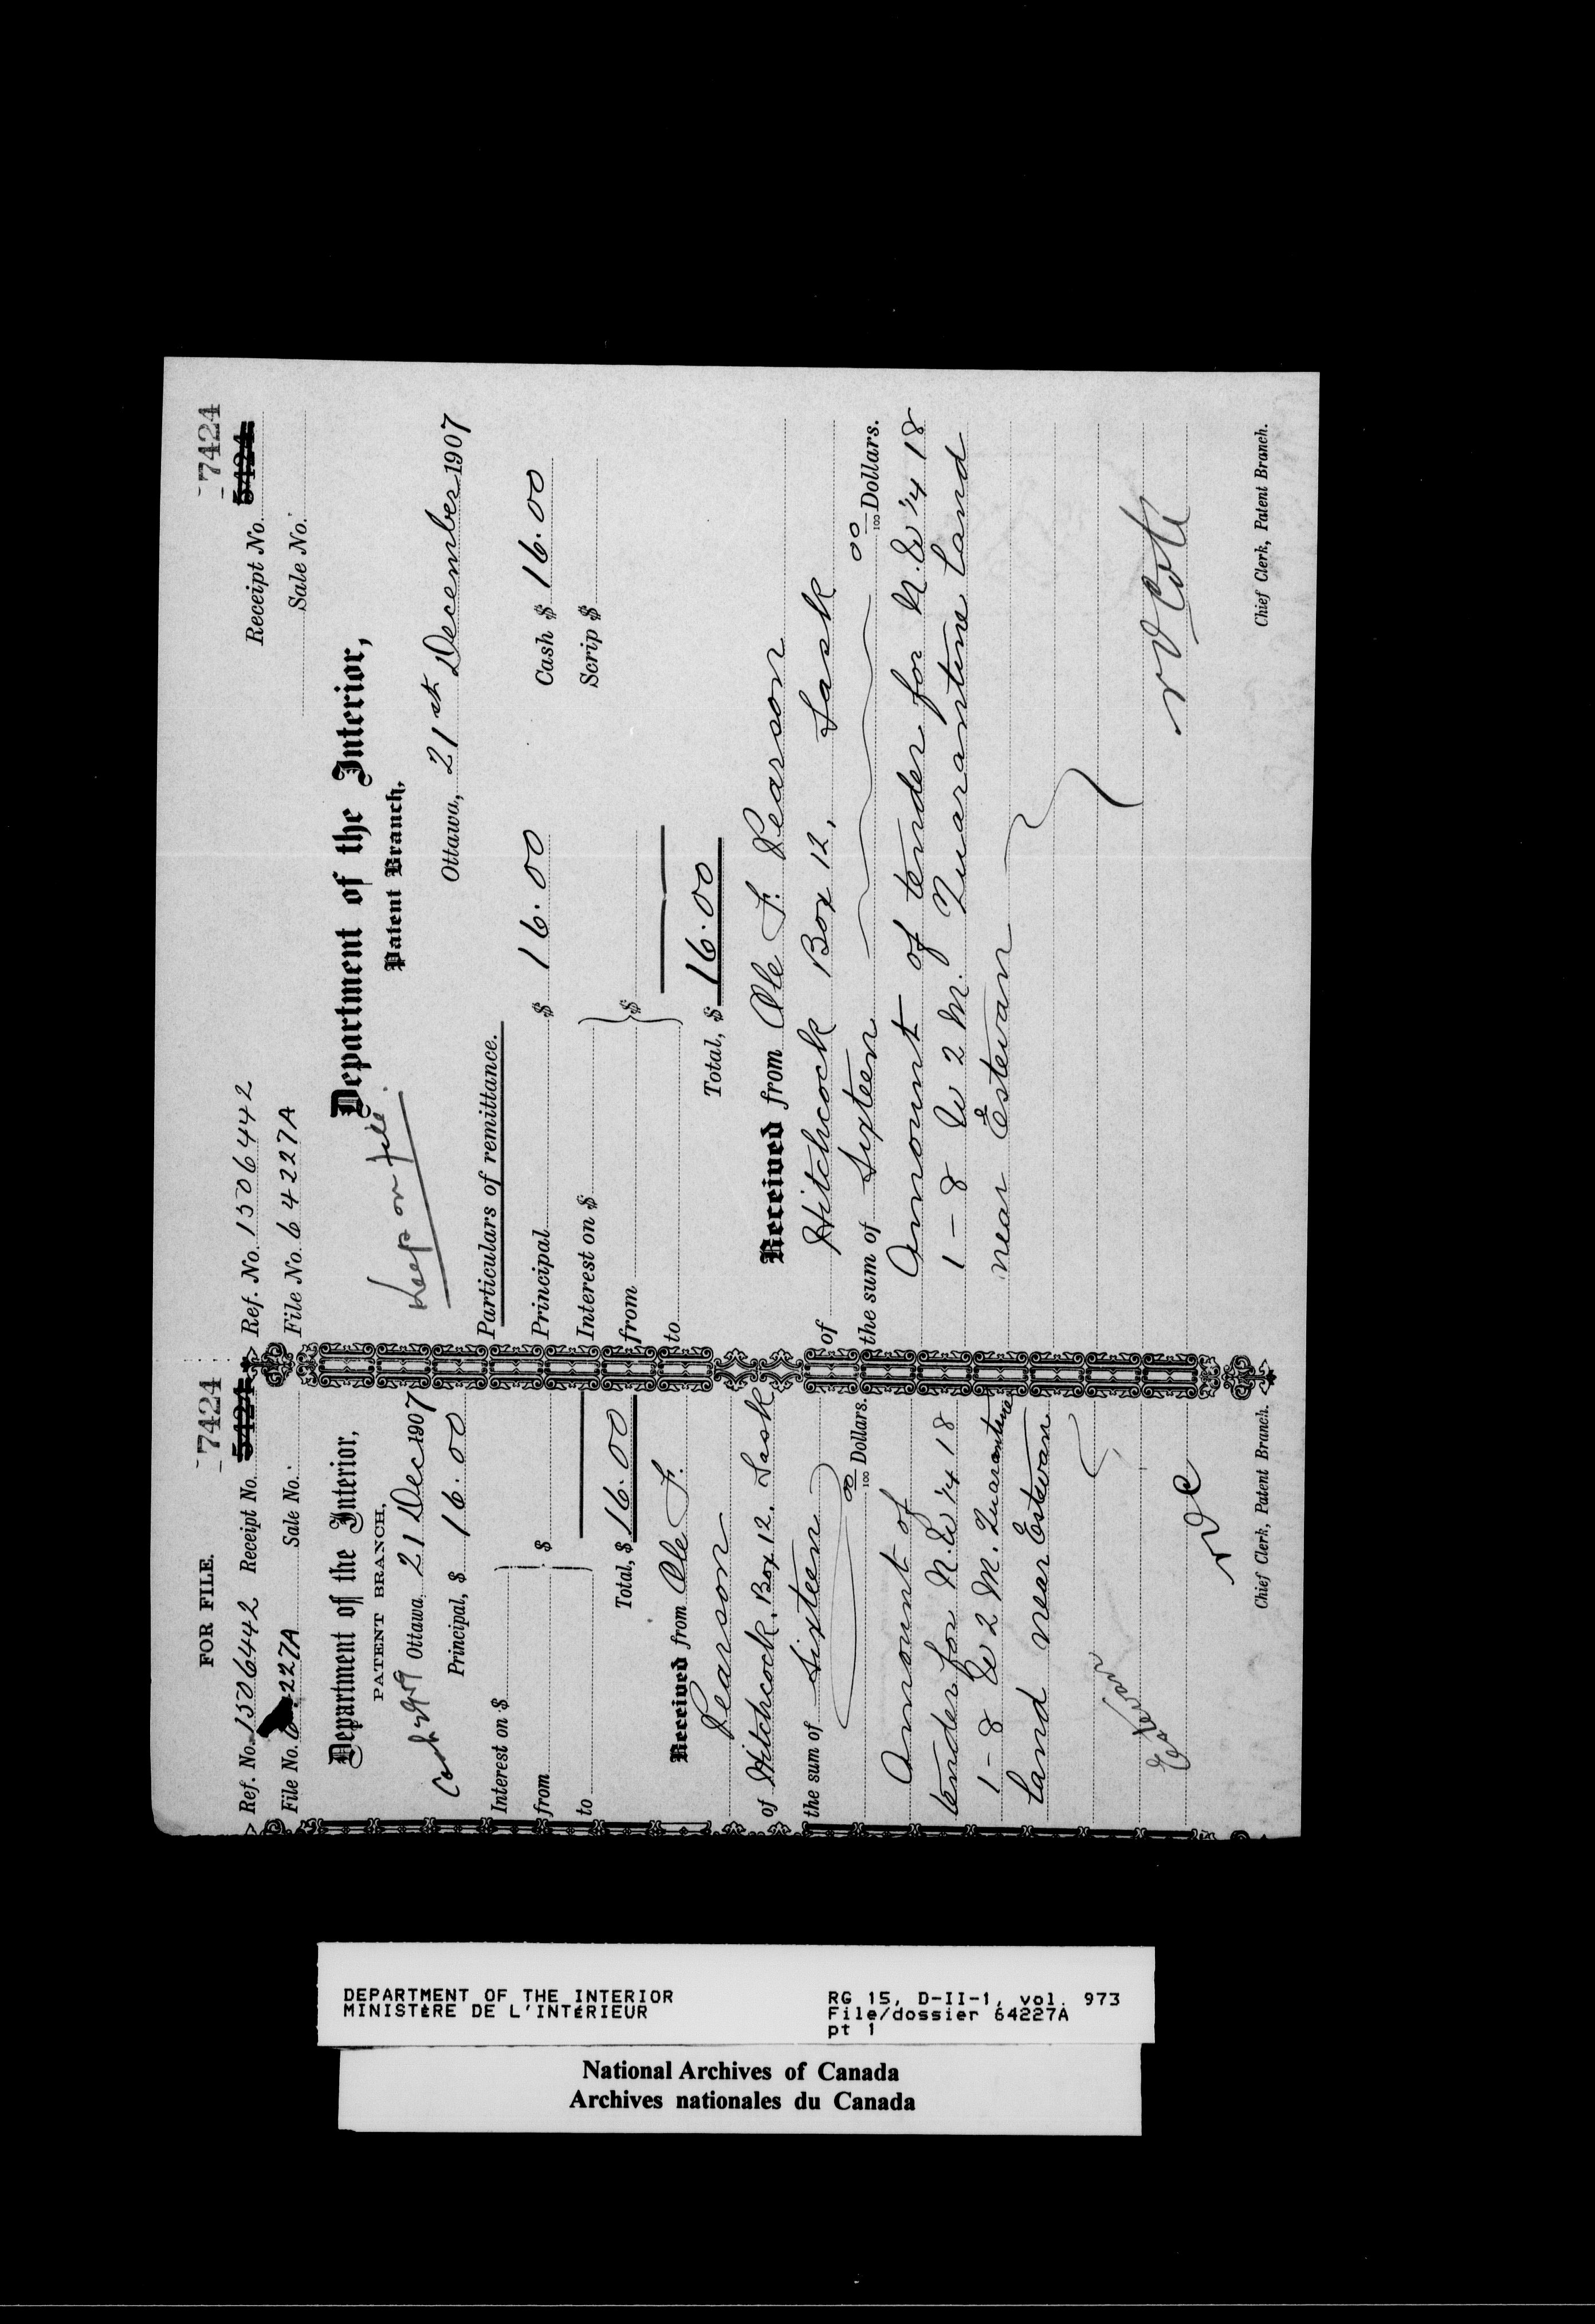 FOR FILE.
7424
Ref. No. 1506442 Receipt No. 5424
File No. 6 227A Sale No.
Department of the Interior,
PATENT BRANCH,
Ottawa, 21 Dec 1907
Principal, $ 16.00
Interest on $
from $
to
Total, $ 16.00
Received from Ole F.
Pearson
of Hitchcock, Box 12. Sask
the sum of Sixteen 00/100 Dollars.
Amount of
tender for N.W 1/4 18
1 - 8 W 2 M. Quarantine
land near Estevan
Estevan
RDC
Chief Clerk, Patent Branch.
7424
Ref. No. 1506442 Receipt No. 5424
File No. 64227A Sale No.
Department of the Interior,
Patent Branch,
Keep on file.
Ottawa, 21st December 1907
Particulars of remittance.
Principal $ 16.00 Cash $ 16.00
Interest on $ Scrip $
from $
to
Total, $ 16.00
Received from Ole F. Pearson
of Hitchcock Box 12, Sask
the sum of Sixteen 00/100 Dollars.
Amount of tender for N.W 1/4 18
1 - 8 W 2 M. Quarantine land
near Estevan
Chief Clerk, Patent Branch.
DEPARTMENT OF THE INTERIOR
MINISTÈRE DE L'INTÉRIEUR
RG 15, D-II-1, vol. 973
File/dossier 64227A
pt 1
National Archives of Canada
Archives nationales du Canada